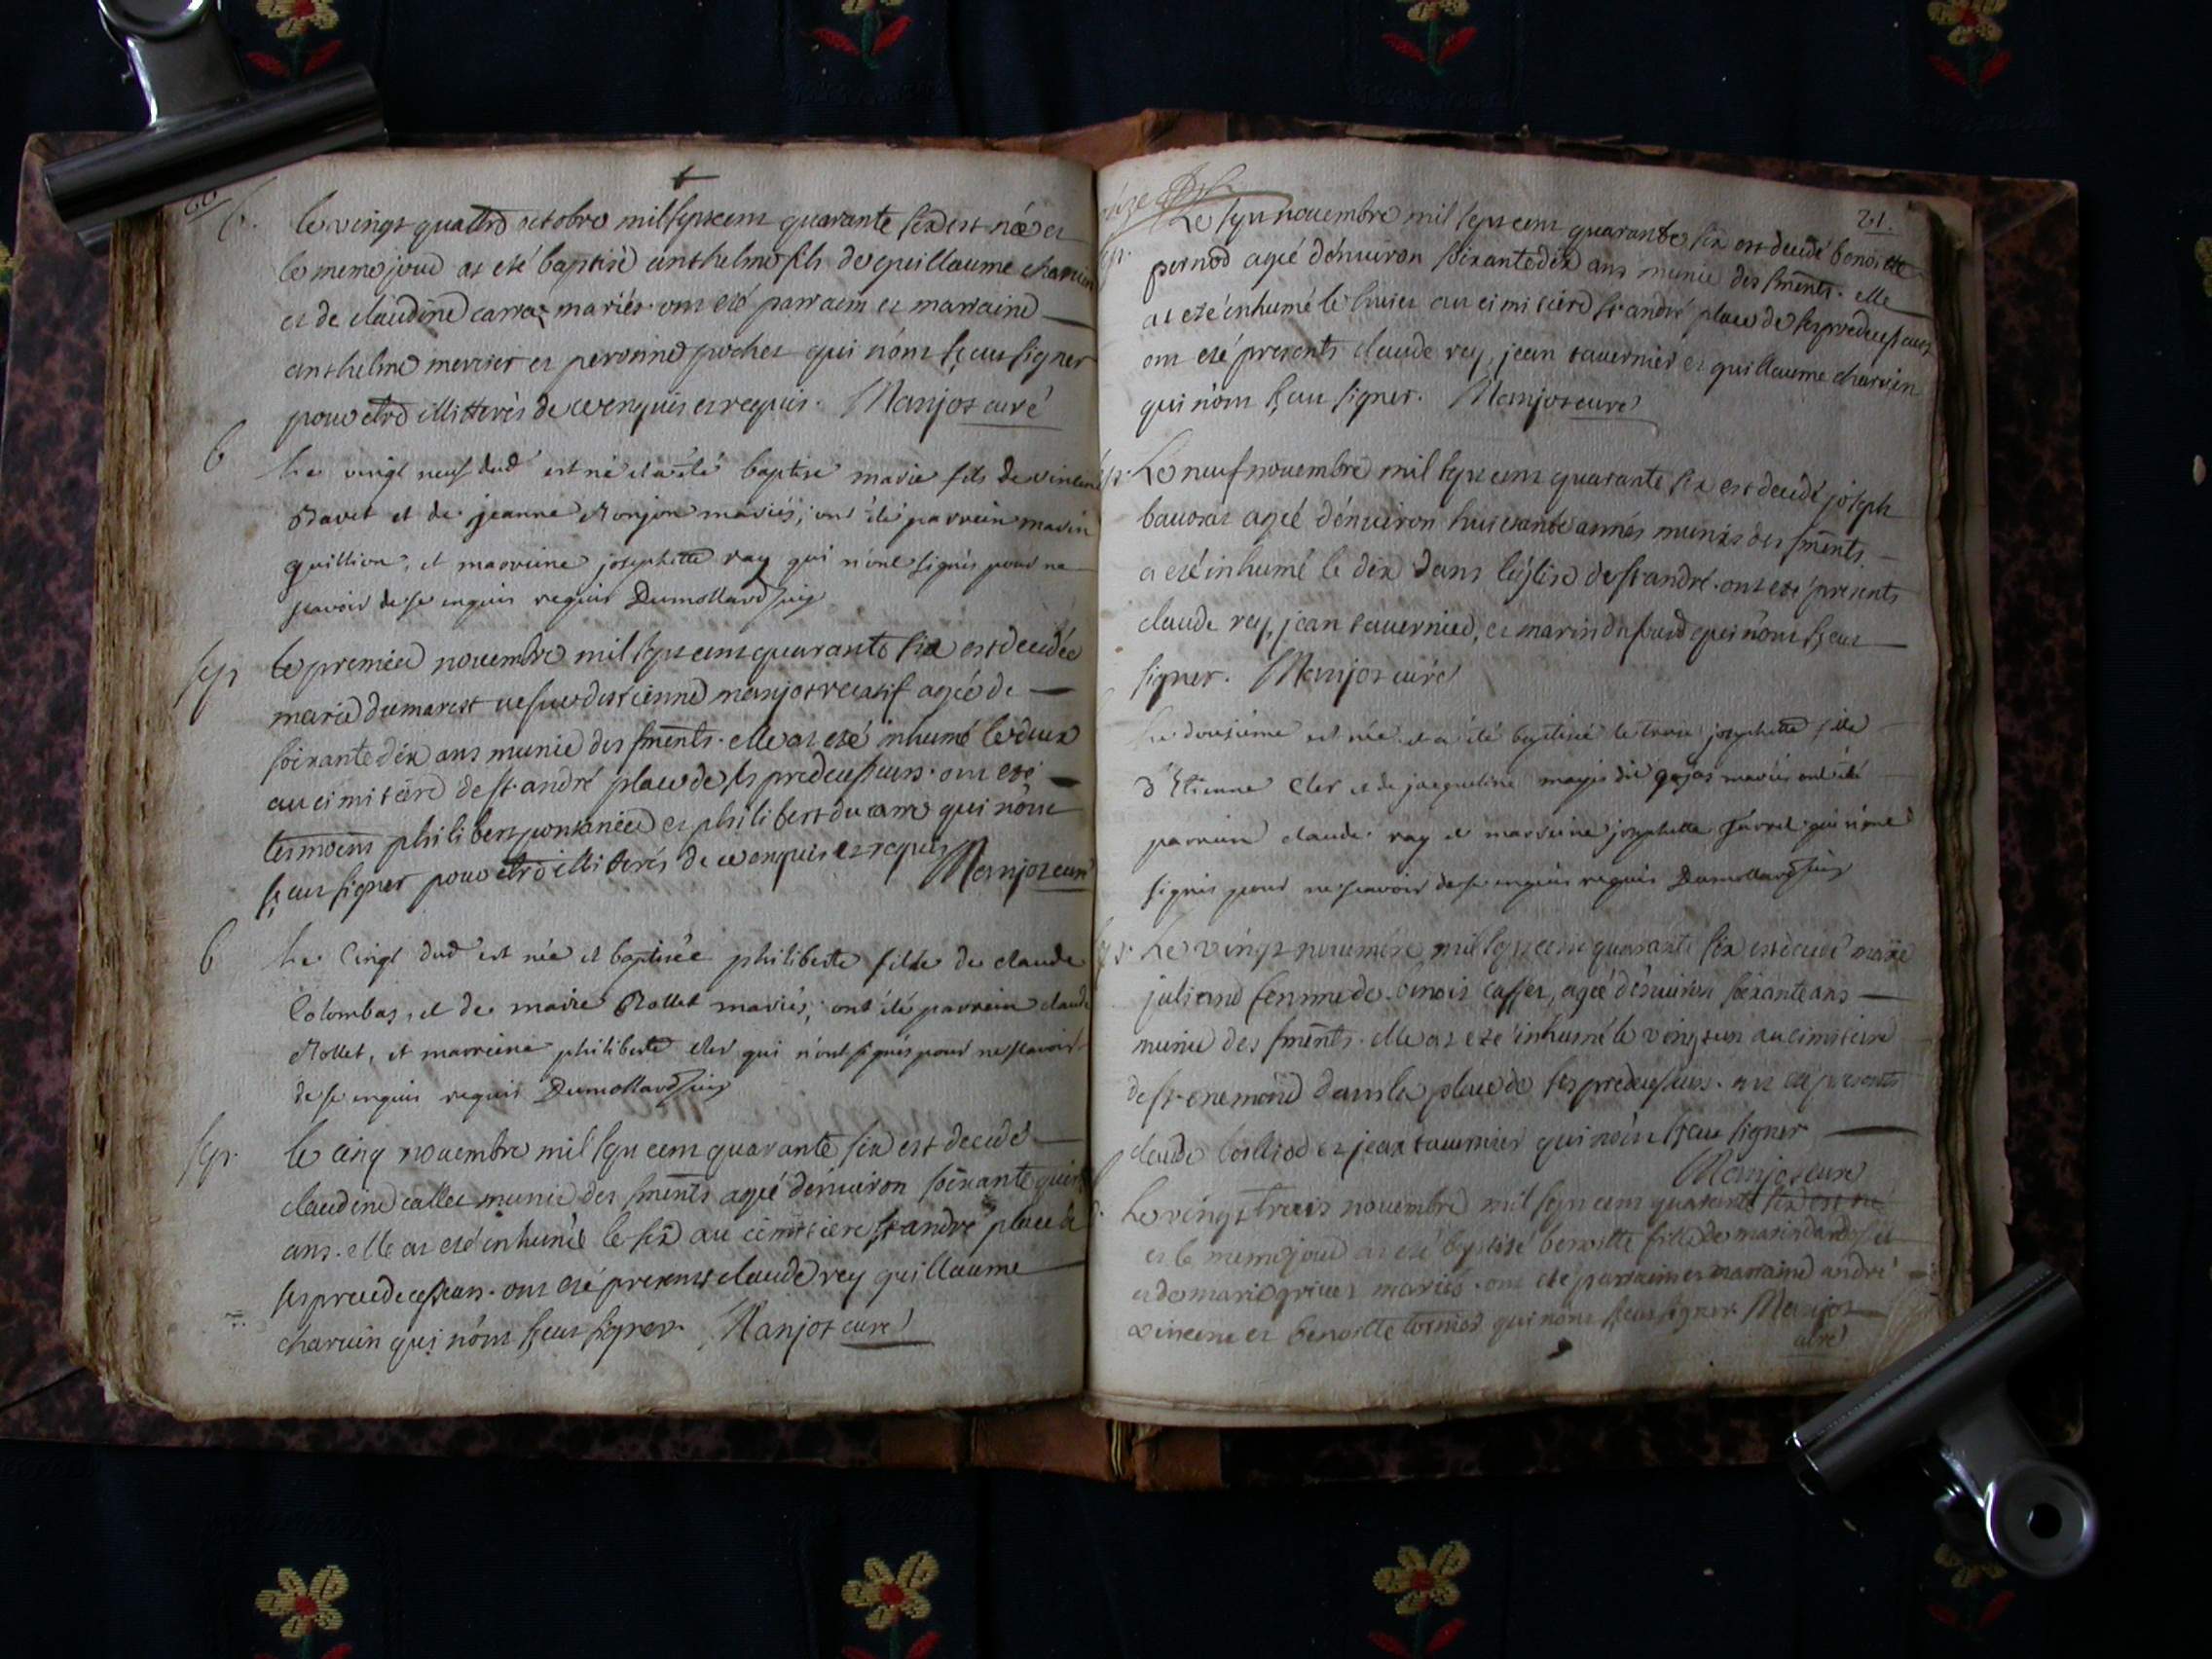 b.
le vingt quattre octobre mil sept cent quarante six est né et
le meme jour at eté baptisé anthelme fils de guillaume charvin
et de claudine carra mariés. ont eté parrain et marraine
anthelme mercier et peronne pochet qui n'ont sçeut signer
pour etre illitterés de ce enquis et requis. Manjot curé
b
Le vingt neuf dud est né et a été baptisé marie fils de vincent
Bavet et de jeanne Monjon mariés; ont été parrein marin
guillion, et marreine josephette ray qui n'ont signés pour ne
scavoir de ce enquis requis Dumollard vic
sep
le premier novembre mil sept cent quarante six est decedée
marie dumarest vefve d'estienne manjot agée de
soixante dix ans munie des sments. elle at eté inhumé le deux
au cimitiere de st. andré place de ses predecesseurs. ont eté
temoins philibert pontanier et philibert ducarre qui n'ont
sçeut signer pour etre illiterés de ce enquis et requis Manjot curé
b
Le Cinq dud est née et baptisée philiberte fille de claude
Colombas, et de marie Rollet mariés; ont été parrein claude
Rollet, et marreine philiberte cler qui n'ont signés pour ne scavoir
de ce enquis requis Dumollard vic
sep.
le cinq novembre mil sept cent quarante six est decedé
claudine callet munie des sments agée d'environ soixante quinz
ans. elle at eté inhumée le six au cimitiere st andré place de
ses precedecesseurs. ont eté presents claude rey guillaume
charvin qui n'ont sçeut signer. Manjot curé
21.
Le sept novembre mil sept cent quarante six est decedé benoitte
pernod agée d'environ soixante dix ans munie des sments. elle
at eté inhumé le huict au cimitiere st. andré place de ses predecesseurs
ont eté presents claude rey, jean tavernier et guillaume charvin
qui n'ont sçeu signer. Manjot curé
sep.
Le neuf novembre mil sept cent quarante six est decedé joseph
bavosat agé d'environ huictante années munis des sments
a eté inhumé le dix dans l'église de st andré. ont eté presents
claude rey, jean tavernier, et marin dufour qui n'ont sçeut
signer. Manjot curé
Le dousième est née et a été baptisée le treise josephette fille
d'Etienne Cler et de jacqueline magis dit gojos mariés ont été
parrein claude ray et marreine josephette qui n'ont
signés pour ne scavoir de ce enquis requis Dumollard vic
Le vingt novembre mil sept cent quarante six est decedé marie
juliand femme de benoit caffet, agée d'environ soixante ans
munie des sments. elle at eté inhumé le vingt un au cimitiere
de st. enemond dans la place de ses predecesseurs. ont eté presents
claude et jean tavernier qui n'ont sçeu signer
Manjot curé
Le vingt trois novembre mil sept cent quarante six est né
et le meme jour at eté baptisé benoitte fille de marin
et de marie mariés. ont eté parrain et marraine andré
vincent et benoitte qui n'ont sçeut signer Manjot
curé